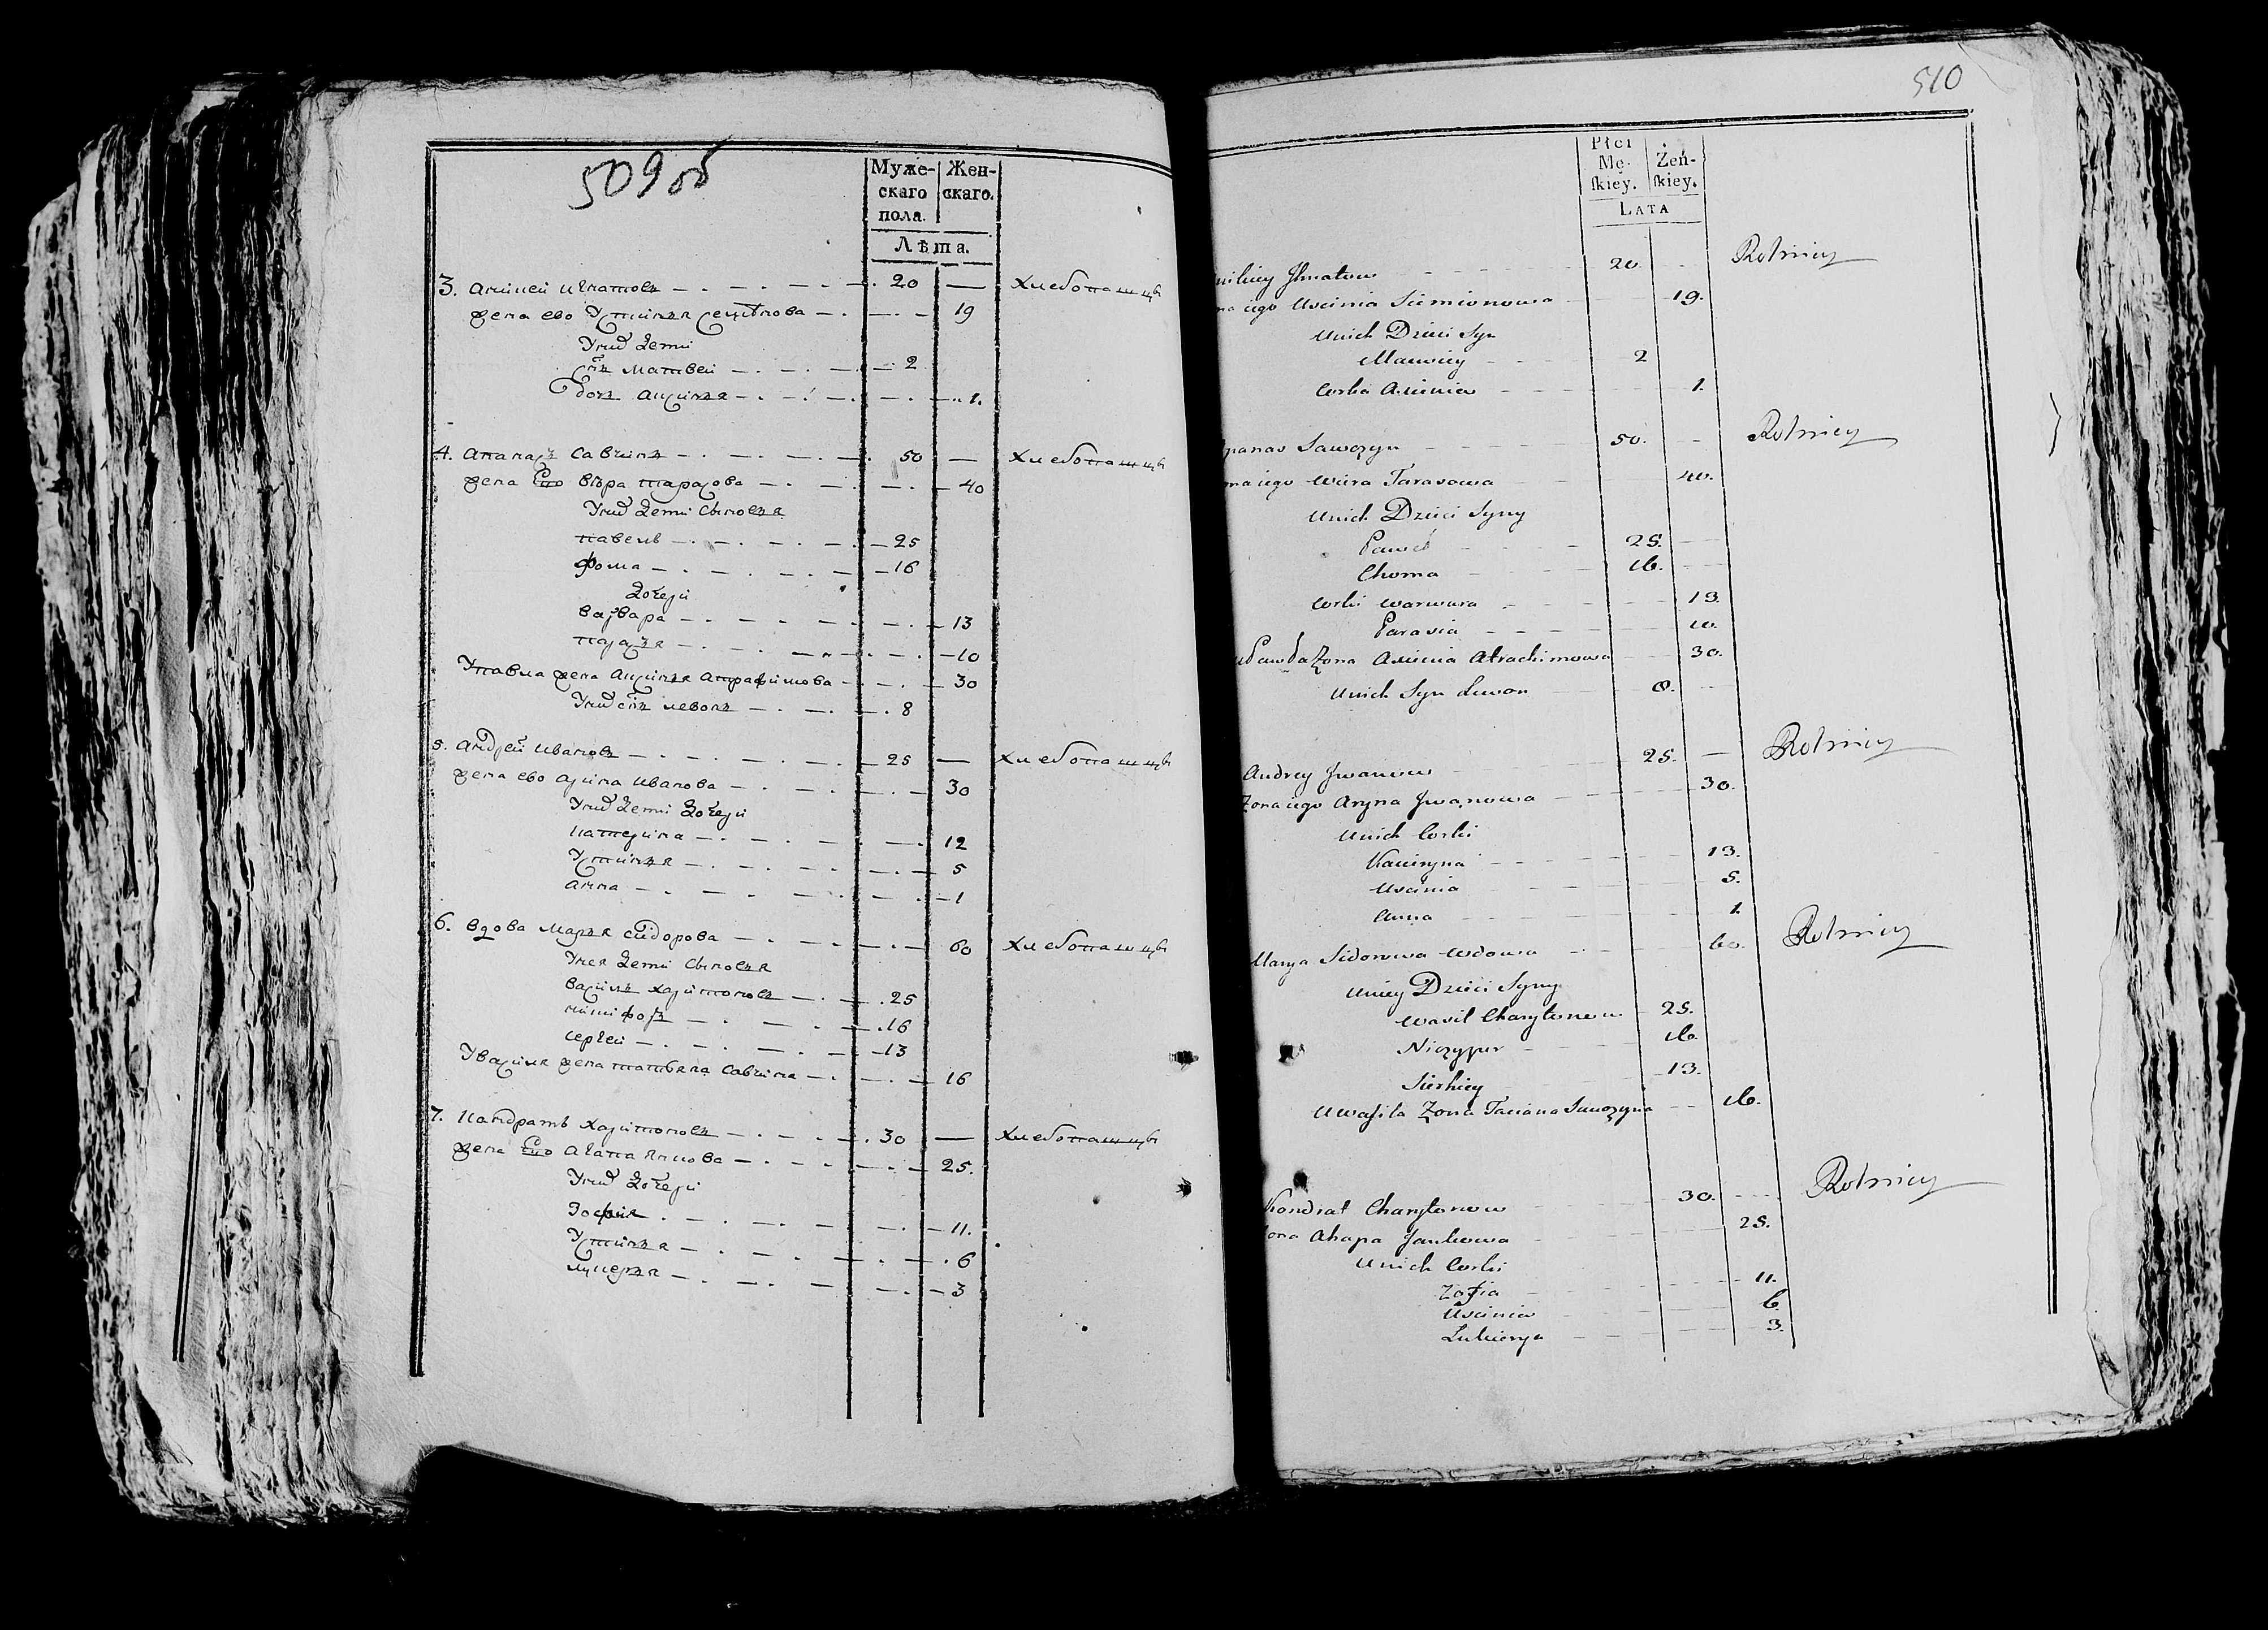 509 об
Муже-
скаго
пола.
Жен-
скаго.
Лѣта.
3. Аникей Игнатовъ 20 — Хлебопашцы
жена ево Устинья Семіонова 19
У них дети
снъ Матвей 2
дочъ Аксинья 1.
4. Апанасъ Савчинъ 50 — Хлебопашцы
жена Ево Вера Тарасова 40
У них дети Сыновья
Павелъ 25
Фома 16
дочери
Варвара 13
Парасья 10
У Павла жена Аксинья Атрафимова 30
У них снъ Левонъ 8
5. Андрей Ивановъ 25 — Хлебопашцы
жена ево Арина Иванова 30
У них дети дочери
Катерина 12
Устинья 5
Анна 1
6. Вдова Марья Сидорова 60 Хлебопашцы
У нея дети Сыновья
Василъ Харитоновъ 25
Ничифоръ 16
Сергей 13
У Васила жена Татьяна Савчина 16
7. Кандратъ Харитоновъ 30 — Хлебопашцы
жена Ево Агапа Якова 25.
У них дочери
Зофия 11.
Устинья 6
Лукерья 3
510
Płci
Mę-
ſkiey.
Żeń-
ſkiey.
LATA
Jhnatow 20. Rolnicy
iego Uscinia Siemionowa 19.
Unich Dzieci Syn
Maciviey 2
Corka Axinia 1.
panas Sawczyn 50. Rolnicy
iego Wiera Tarasowa 40.
Unich Dzieci Syny
Paweł 25.
Choma 16.
Corki Warwara 13.
Parasia 10.
Pawła Żona Axinia Atrachimowa 30.
Unich Syn Lewon 8.
Andrey Jwanow 25. — Rolnicy
Żona iego Aryna Jwanowa 30.
Unich Corki
Kacieryna 13.
Uscinia 5.
Anna 1.
Marya Sidorowa Wdowa 60. Rolnicy
Uniey Dzieci Syny
Wasil Charytonow 25.
Niczypor 16.
Sierhiey 13.
U Wasila Żona Taciana Sawczyna 16.
Kondrat Charytonow 30. Rolnicy
ona Ahapa Jankowa 25.
Unich Corki
Zofia 11.
Uscinia 6.
Lukierya 3.